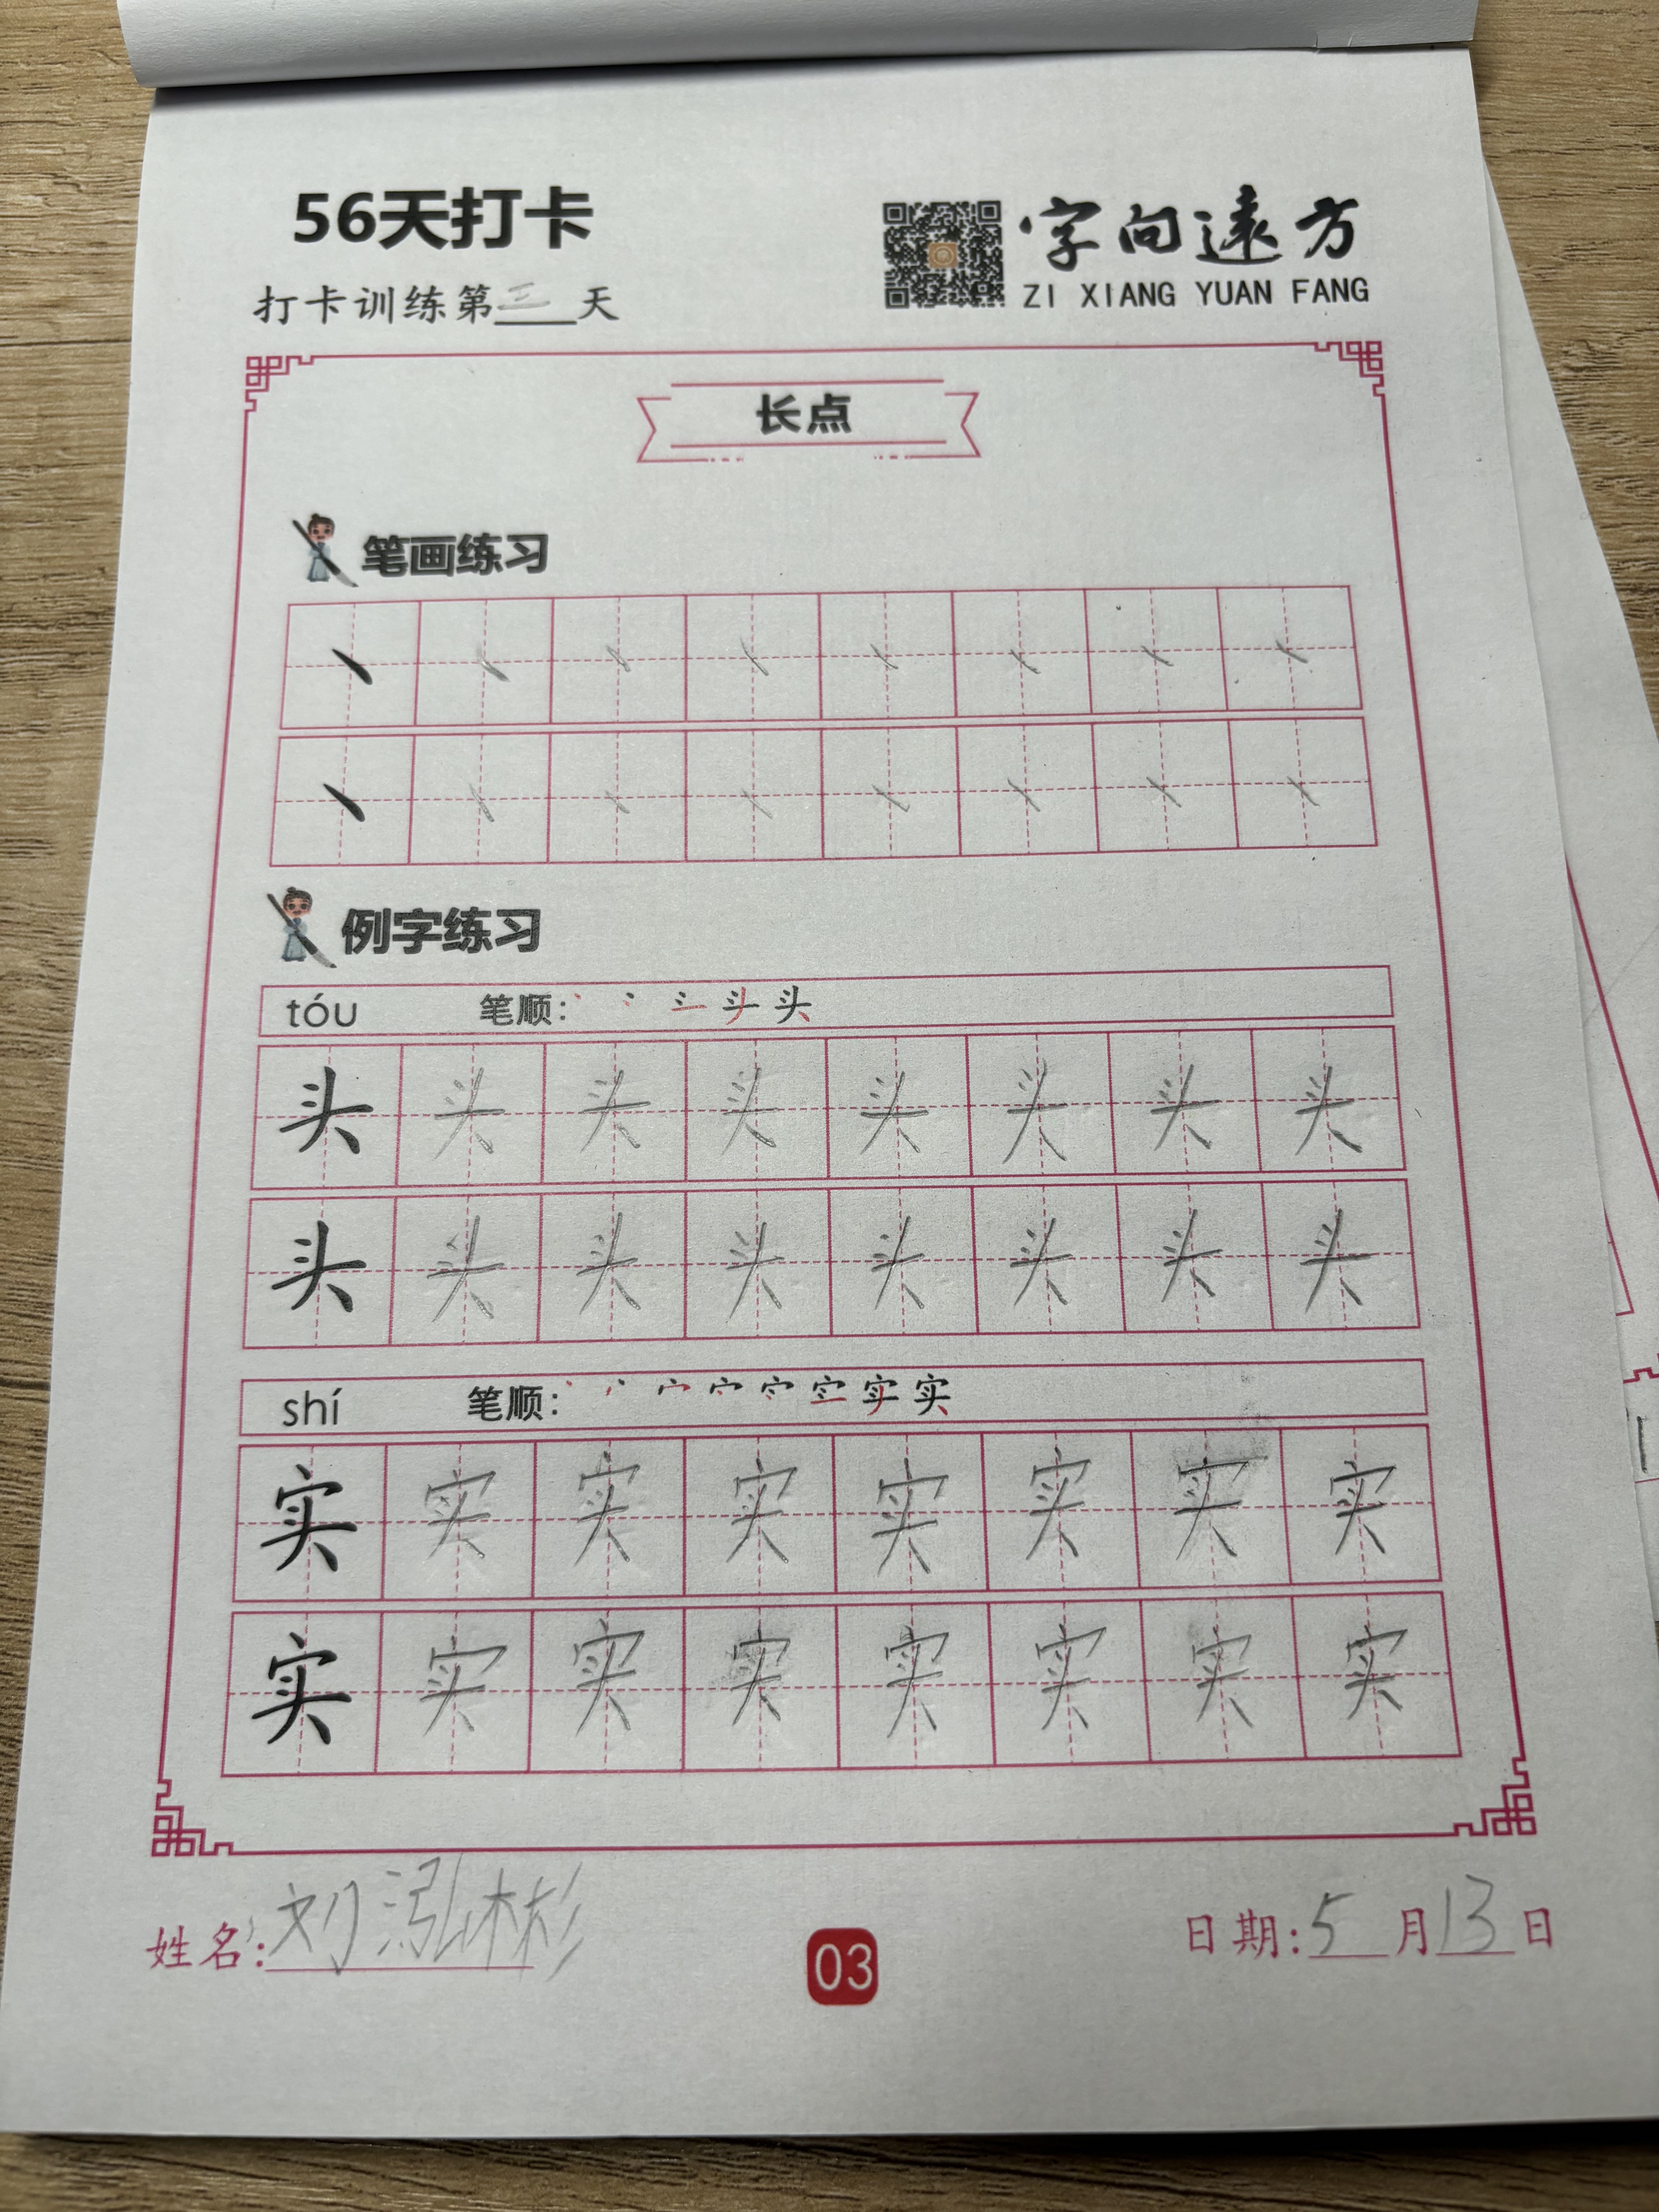 56天打卡
字向遠方
打卡训练第三天
ZI XIANG YUAN FANG
长点
笔画练习
丶 丶 丶 丶 丶 丶 丶 丶
丶 丶 丶 丶 丶 丶 丶 丶
例字练习
tóu 笔顺：
头 头 头 头 头 头 头 头
头 头 头 头 头 头 头 头
shí 笔顺：
实 实 实 实 实 实 实 实
实 实 实 实 实 实 实 实
姓名：刘泓彬 03 日期：5月13日